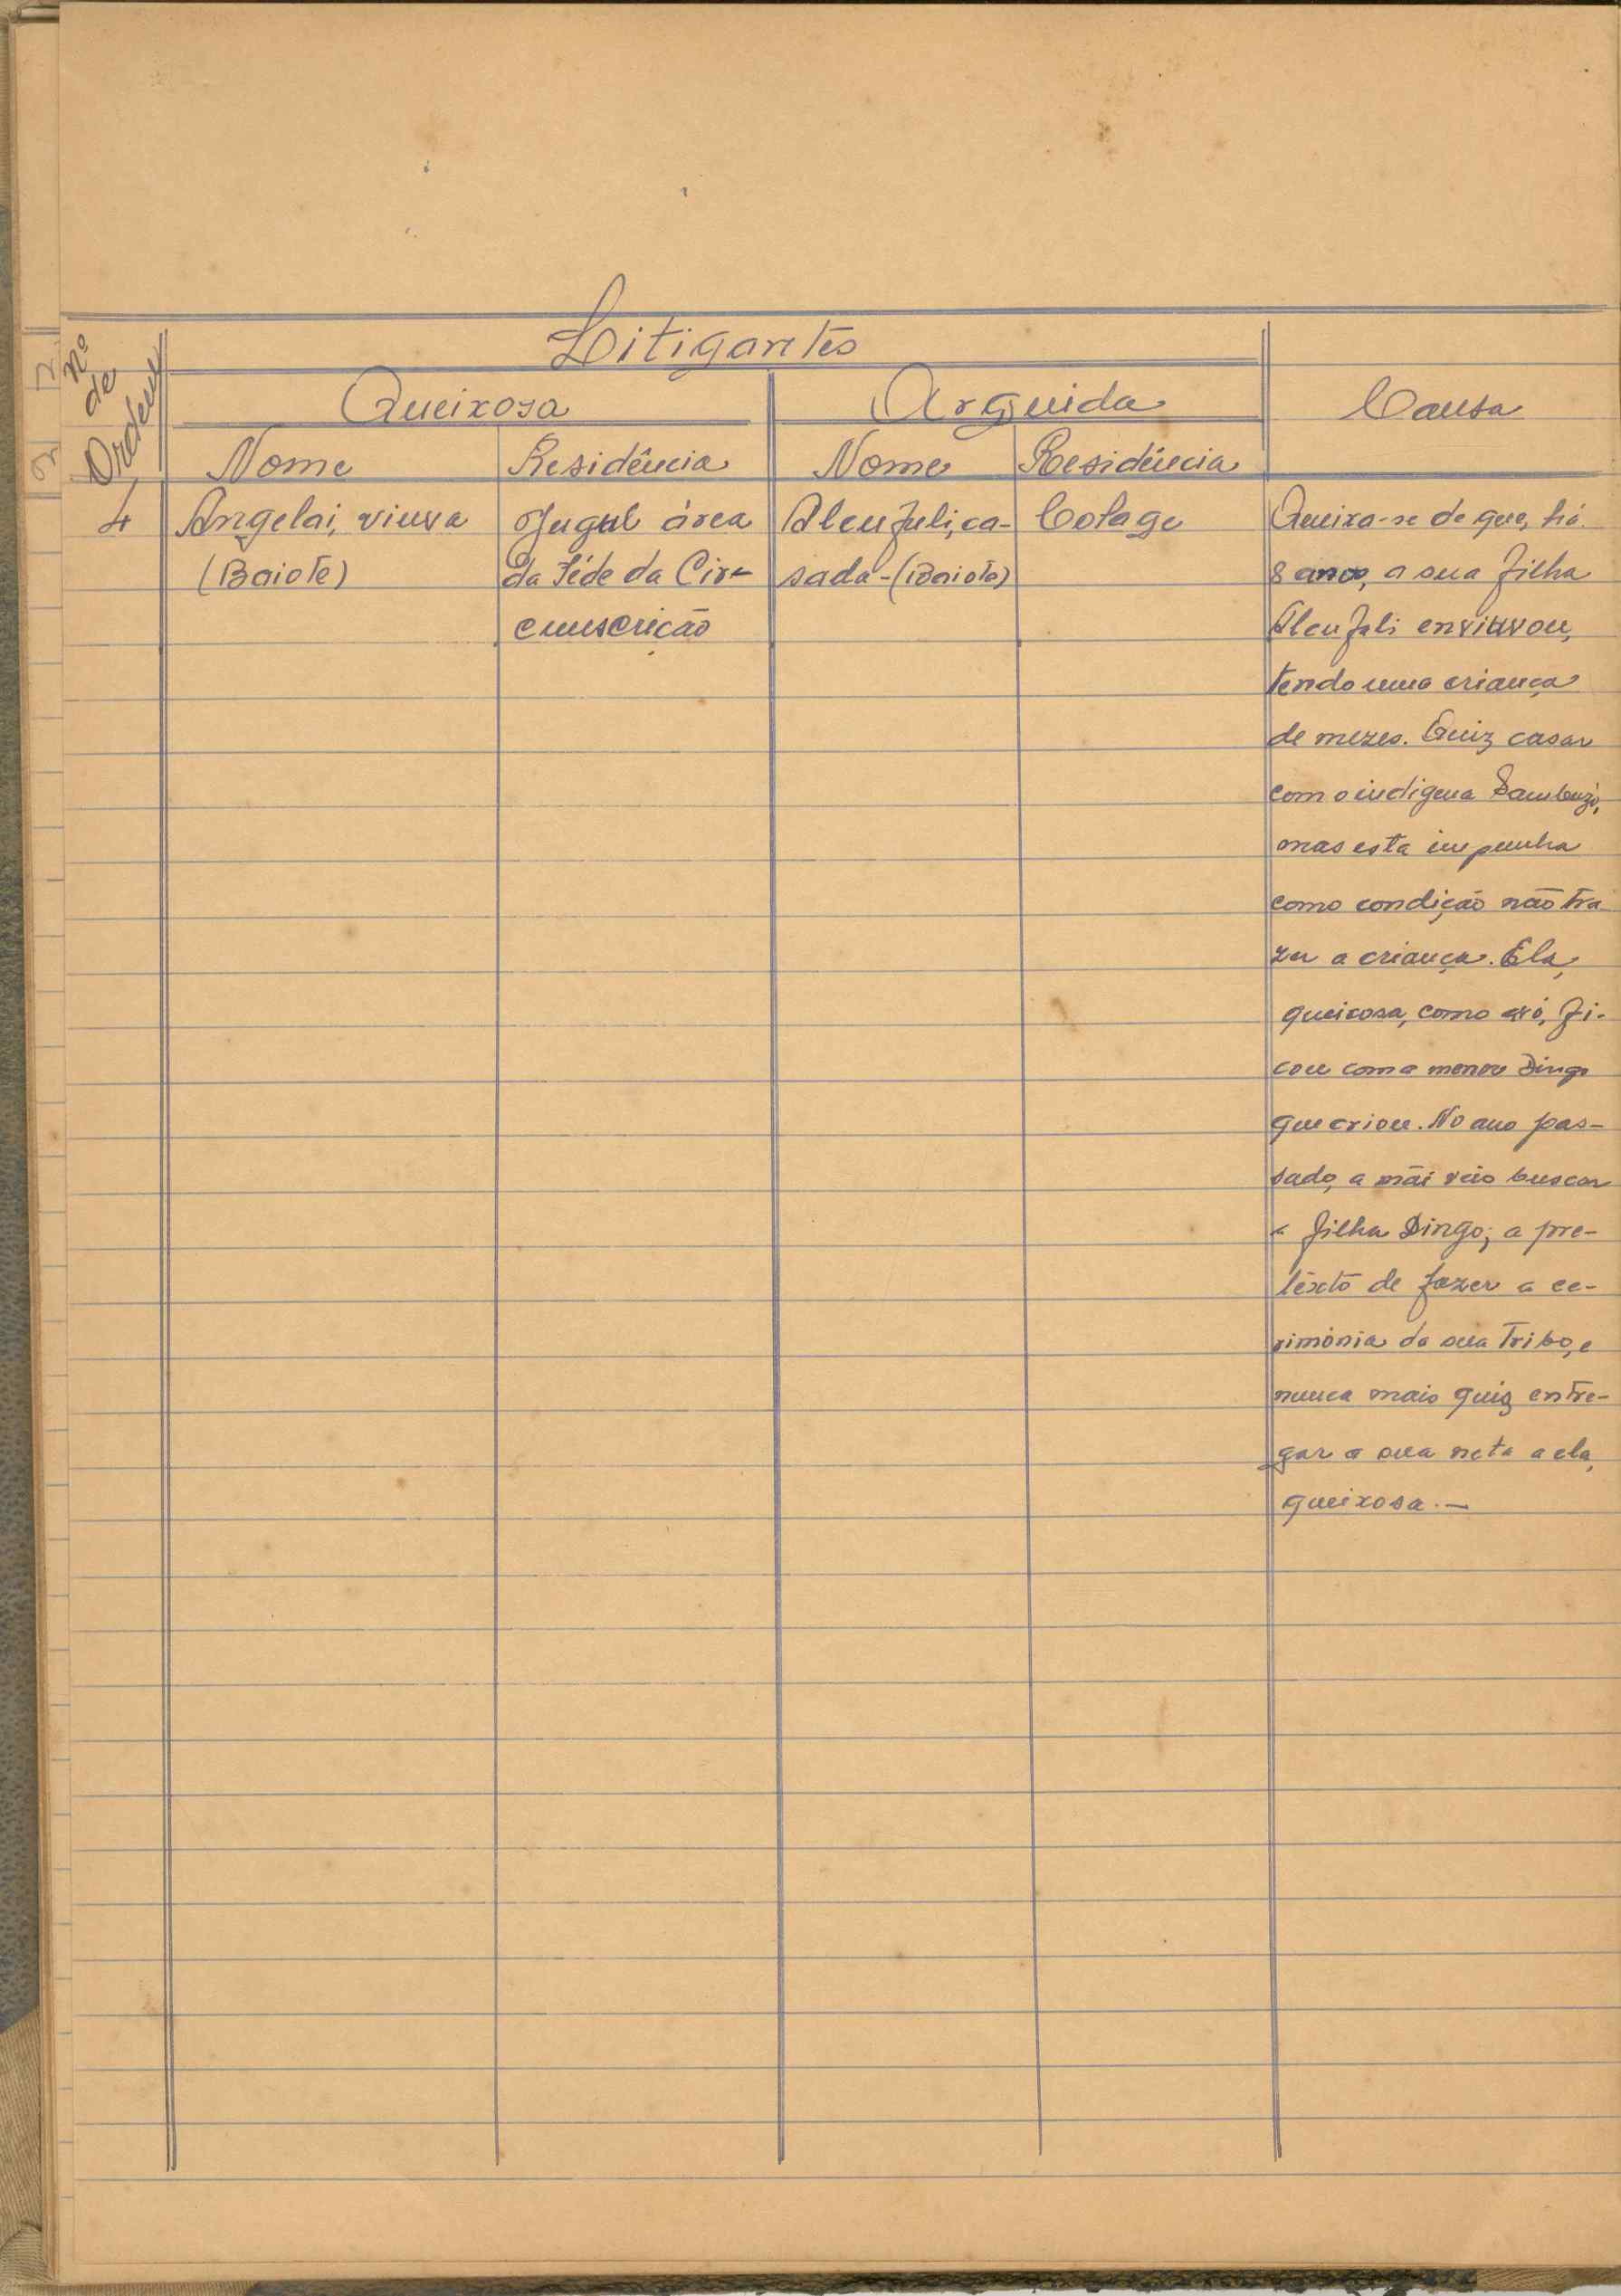 Litigantes
Nº de Ordem
Queixosa
Arguida
Causa
Nome
Residência
Nome
Residência
4
Angelai, viuva
(Baiote)
Jugul área
da Séde da Cir-
cunscrição
Aleufuli, ca-
sada - (Baiote)
Colage
Queixa-se de que, há
8 anos, a sua filha
Aleufuli enviuvou,
tendo uma criança
de mezes. Quiz casar
com o indigena
mas esta impunha
como condição não tra
zer a criança. Ela,
queixosa, como avó, fi-
cou com a menor Dingo
que criou. No ano pas-
sado, a mãi veio buscar
a filha Dingo; a pre-
texto de fazer a ce-
rimónia da sua Tribo, e
nunca mais quiz entre-
gar a sua neta a ela,
queixosa. -